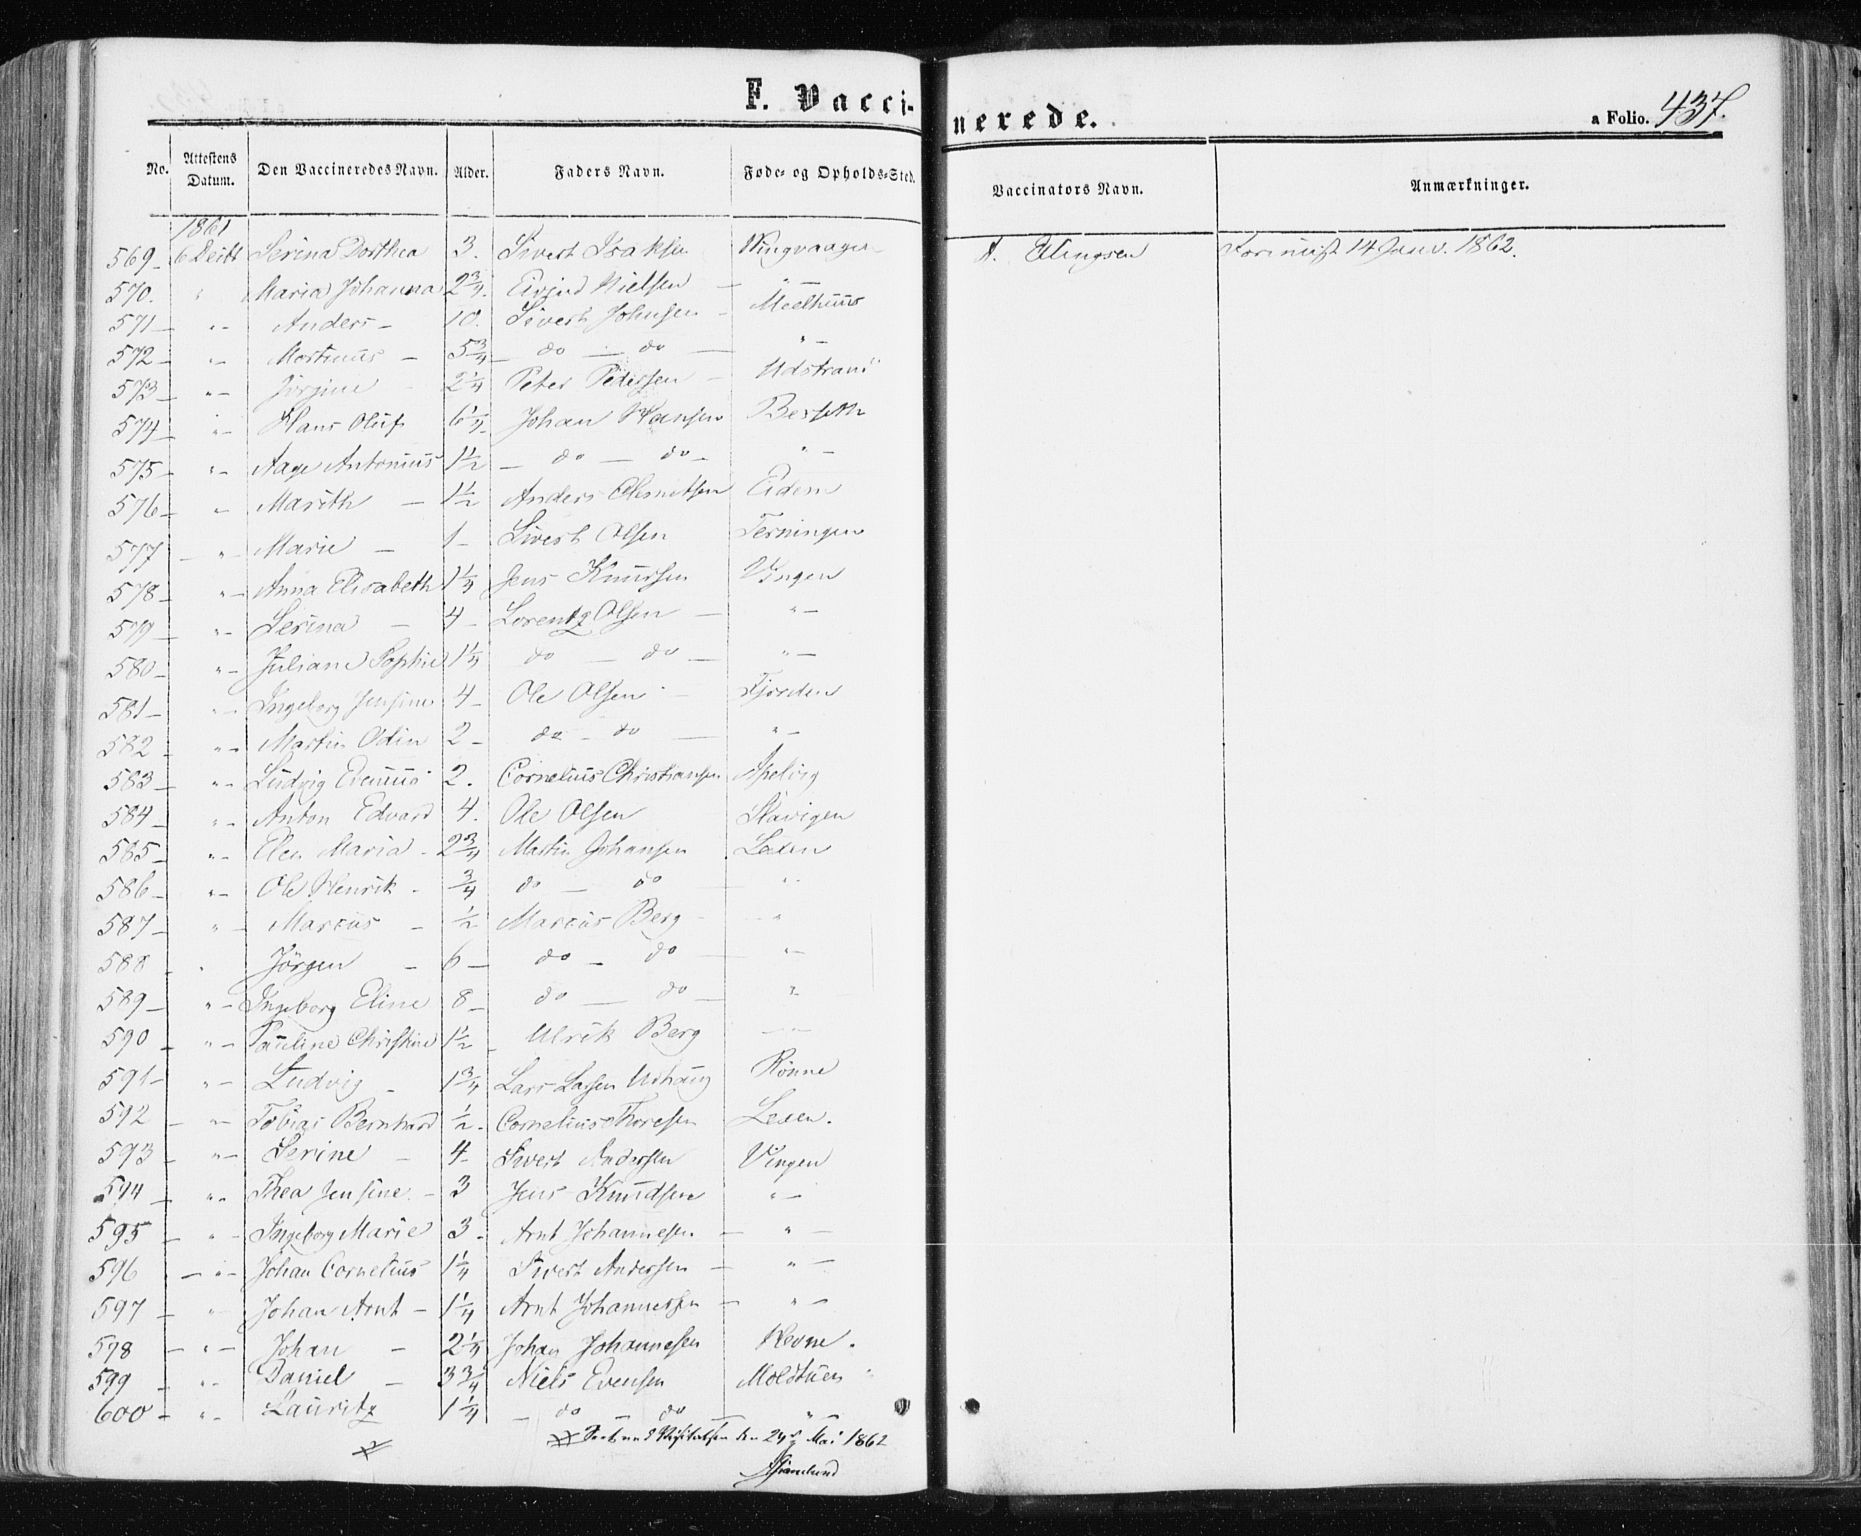 F. Vaccinerede.
a Folio. 437.
No. Attestens Datum. Den Vaccineredes Navn. Alder. Faders Navn. Føde- og Opholds-Sted. Vaccinators Navn. Anmærkninger.
1861
569 6 Decbr Serina Dorthea 3. Sivert Isaksen A. Ellingsen 14 Janv. 1862.
570. " Maria Johanna 2 3/4. Nielsen — " —
571 — " — Anders — 10. Sivert Johnsen — Meelhuus
572 — " — Martinus — 5 3/4 — do — do — " —
573 — " — Jørgine 2 1/4 Peter Pedersen —
574 — " — Hans Oluf 6 1/4 Johan Hansen Berseth
575 — " — Aage Antonius 1 1/2 — do — do — " —
576 — " Marith — 1 1/2 Anders Eidem
577 — " — Marie — 1 — Sivert Olsen Terningen
578 — " — Anna Elisabeth 1 1/4 Jens Knudsen Vingen
579 — " — Serina — 4 — Lorentz Olsen — " —
580 — " — Juliane Sophie 1 1/4 do — do — " —
581 — " — Ingeborg Jensine 4 — Ole Olsen — Fjorden
582 — " — Martin Odin 2 — do — do — " —
583 — " — Ludvig 2. Cornelius Christiansen
584 — " — Anton Edvard 4. Ole Olsen Slavigen
585 — " — Elen Maria — 2 3/4 Martin Johansen Lexen
586 — " — Ole Henrik — 3/4 do — do — "
587 — " — Marcus — 1/2 Marcus Berg — "
588 — " Jörgen — 6 — do — do — " —
589 — " — Ingeborg Eline 8 — do — do — "
590 — " — Pauline Christine 1 1/2 — Ulrik Berg — " —
591 — " — Ludvig — 1 3/4 Lars Larsen Rönne
592 — " — Tobias Bernhard 1/2 — Cornelius Thoresen Lexen.
593 — " — Serine — 4 — Sivert Anderssen Vingen
594 — " — Thea Jensine — 3 Jens Knudsen " —
595 — " — Ingeborg Marie 3 — Arnt Johannesen — " —
596 — " — Johan Cornelius 1 1/4 Sivert Andersen — " —
597 — " Johan Arnt — 1 1/4 Arnt Johannessen — " —
598 — " — Johan — 2 1/4 Johan Johannesen Hevne.
599 — " — Daniel — 3 3/4 Niels Evensen
600 — " — Lauritz 1 1/4 — do — do — " —
Visitatsen den 24de Mai 1862